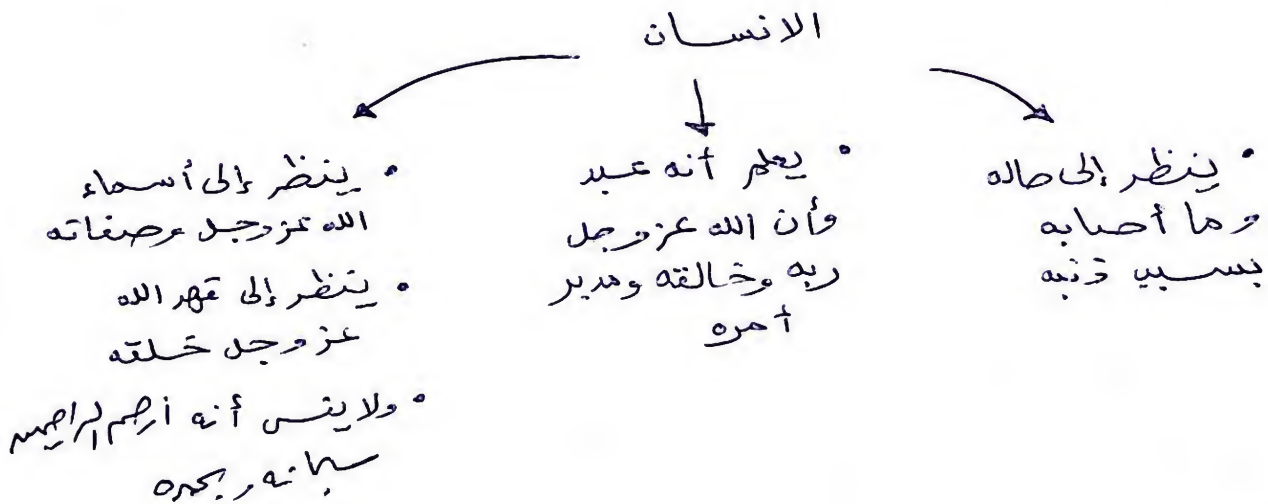 الانسان
• ينظر إلى حاله
وما أصابه
بسبب ذنبه
• يعلم أنه عبد
وأن الله عز وجل
ربه وخالقه ومدبر
أمره
• ينظر إلى أسماء
الله عز وجل وصفاته
• ينظر إلى قهر الله
عز وجل خلقه
• ولا ينس أنه أرحم الراحمين
سبحانه وبحمده